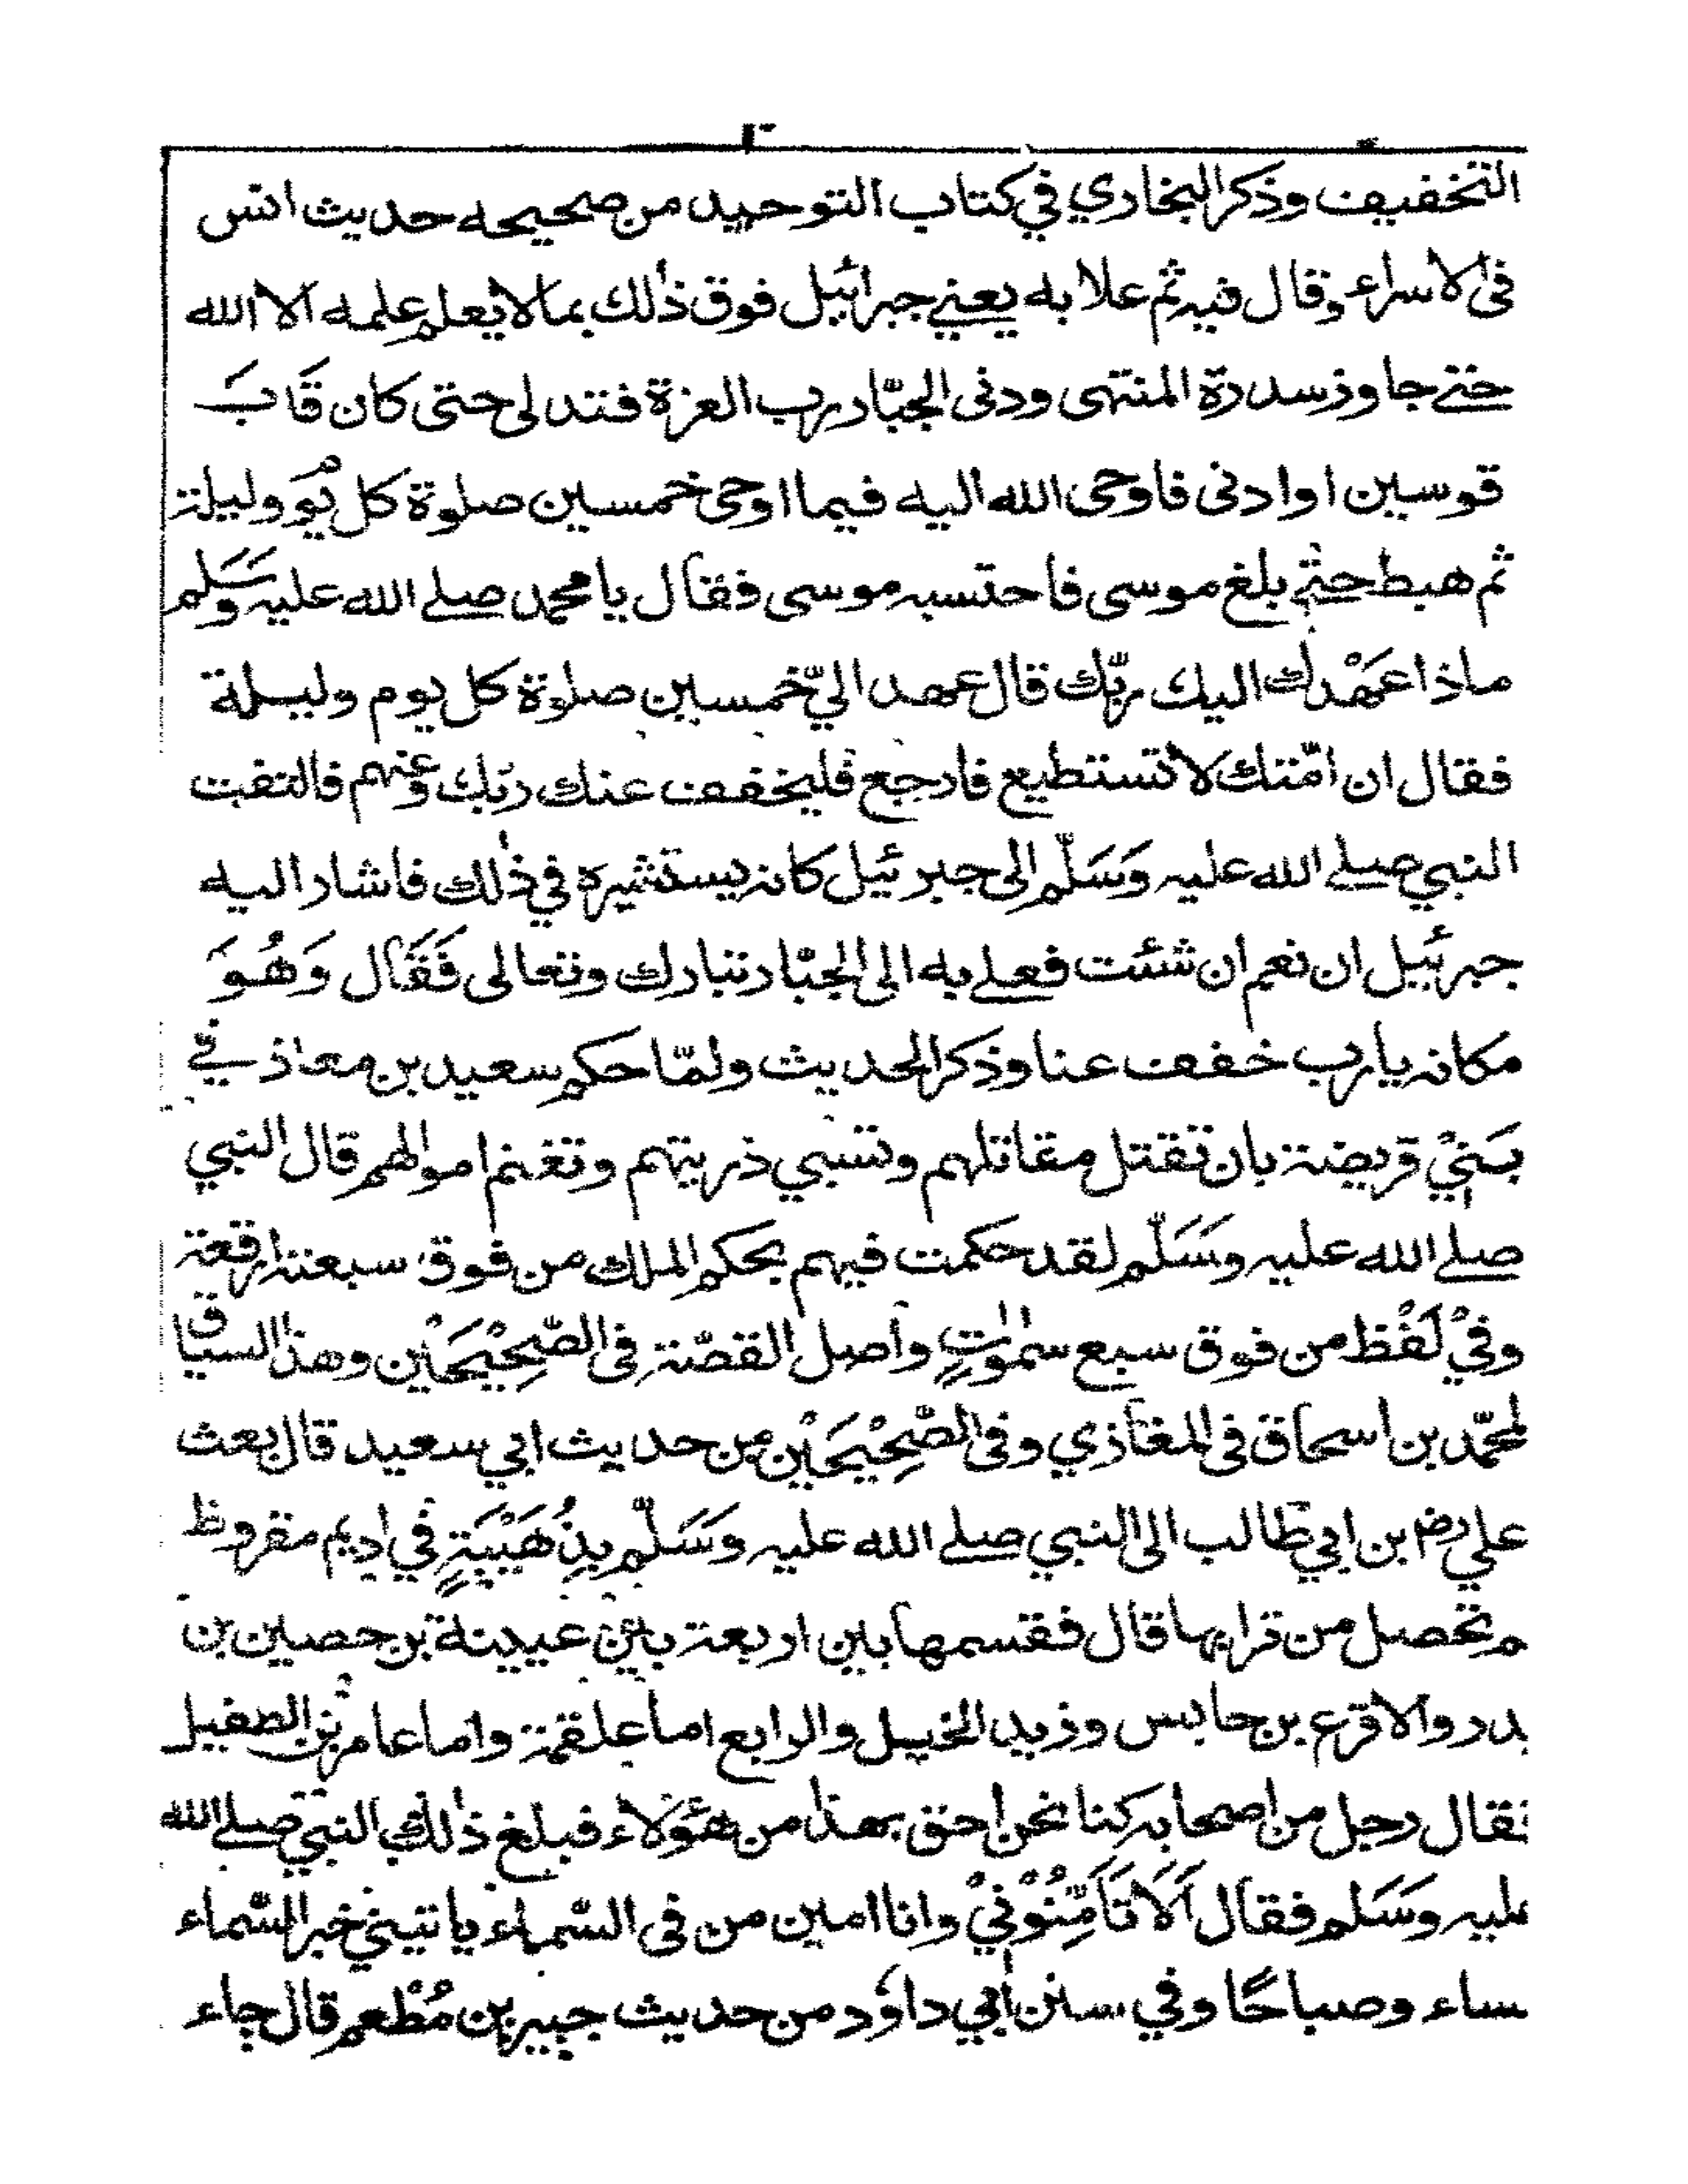 التخفيف وذكر البخاري في كتاب التوحيد من صحيحه حديث انس
فى الاسراء وقال فيه ثم علا به يعني جبرائيل فوق ذٰلك بما لا يعلم علمه الا الله
حتى جاوز سدرة المنتهى ودنى الجبّار رب العزة فتدلى حتى كان قَابَ
قوسين او ادنى فاوحى الله اليه فيما اوحى خمسين صلوة كل يوم وليلة
ثم هبط حتى بلغ موسى فاحتسبه موسى فقال يا محمد صلى الله عليه وَسَلم
ماذا عَهْدك اليك ربّك قال عهد اليّ خمسين صلوة كل يوم وليلة
فقال ان امّتك لا تستطيع فارجع فليخفف عنك ربّك وعنهم فالتفت
النبي صلى الله عليه وَسَلّم الى جبرئيل كانه يستشيره في ذٰلك فاشار اليه
جبرئيل ان نعم ان شئت فعلى به الى الجبّار تبارك وتعالى فَقَال وَهُوَ
مكانه يا رب خفف عنا وذكر الحديث ولمّا حكم سعيد بن معاذ في
بَنِيْ قريضة بان تقتل مقاتلهم وتسبي ذريتهم وتغنم اموالهم قال النبي
صلى الله عليه وسَلّم لقد حكمت فيهم بحكم الملك من فوق سبعة ارقعة
وفيْ لَفْظ من فوق سبع سمٰوٰتٍ واصل القصّة فى الصّحِيْحَيْن وهذا السياق
لمحمّد بن اسحاق فى المغازي وفى الصّحِيْحَيْن من حديث ابي سعيد قال بعث
علي رض بن ابي طالب الى النبي صلى الله عليه وَسَلّم بِذُهَيْبَةٍ في اديم مقروظ
م تحصل من ترابها قال فقسمها بين اربعة بين عيينة بن حصين بن
بدر والاقرع بن حابس وزيد الخيل والرابع اما علقمة واما عامر بن الطفيل
فقال رجل من اصحابه كنا نحن احق بهذا من هؤلاء فبلغ ذٰلك النبي صلى الله
عليه وَسَلم فقال اَلَا تَاَمِّنُوْنِيْ وانا امين من فى السّماء ياتيني خبر السّماء
مساء وصباحًا وفي سنن ابي داؤد من حديث جبير بن مُطْعم قال جاء